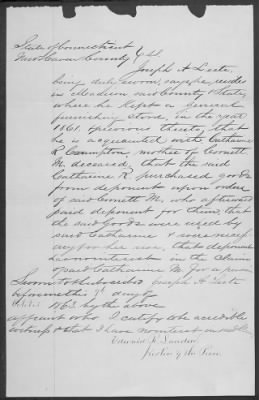 State of Connecticut
New Haven County
Joseph A Leete
being duly sworn, says he resides
in Madison said County & State,
where he kept a general
furnishing store, in the year
1861 & previous thereto, that
he is acquainted with Catharine
R Crampton, mother of Cornett
M. deceased, that the said
Catharine R purchased goods
from deponent upon order
of said Cornett M., who afterward
paid deponent for them, that
the said goods were used by
said Catharine & were necessary
for her use, that deponent
is in the claim
of said Catharine M. for a pension
Sworn to & subscribed Joseph A Leete
before me this day of
1863 by the above
who I certify is a credible
witness & that I have no interest in
Edward
Justice of the Peace